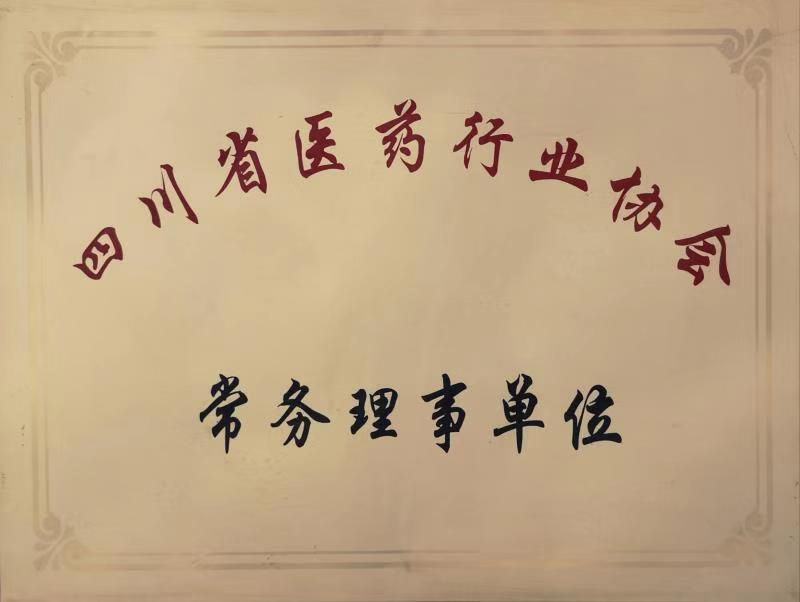 四川省医药行业协会
常务理事单位